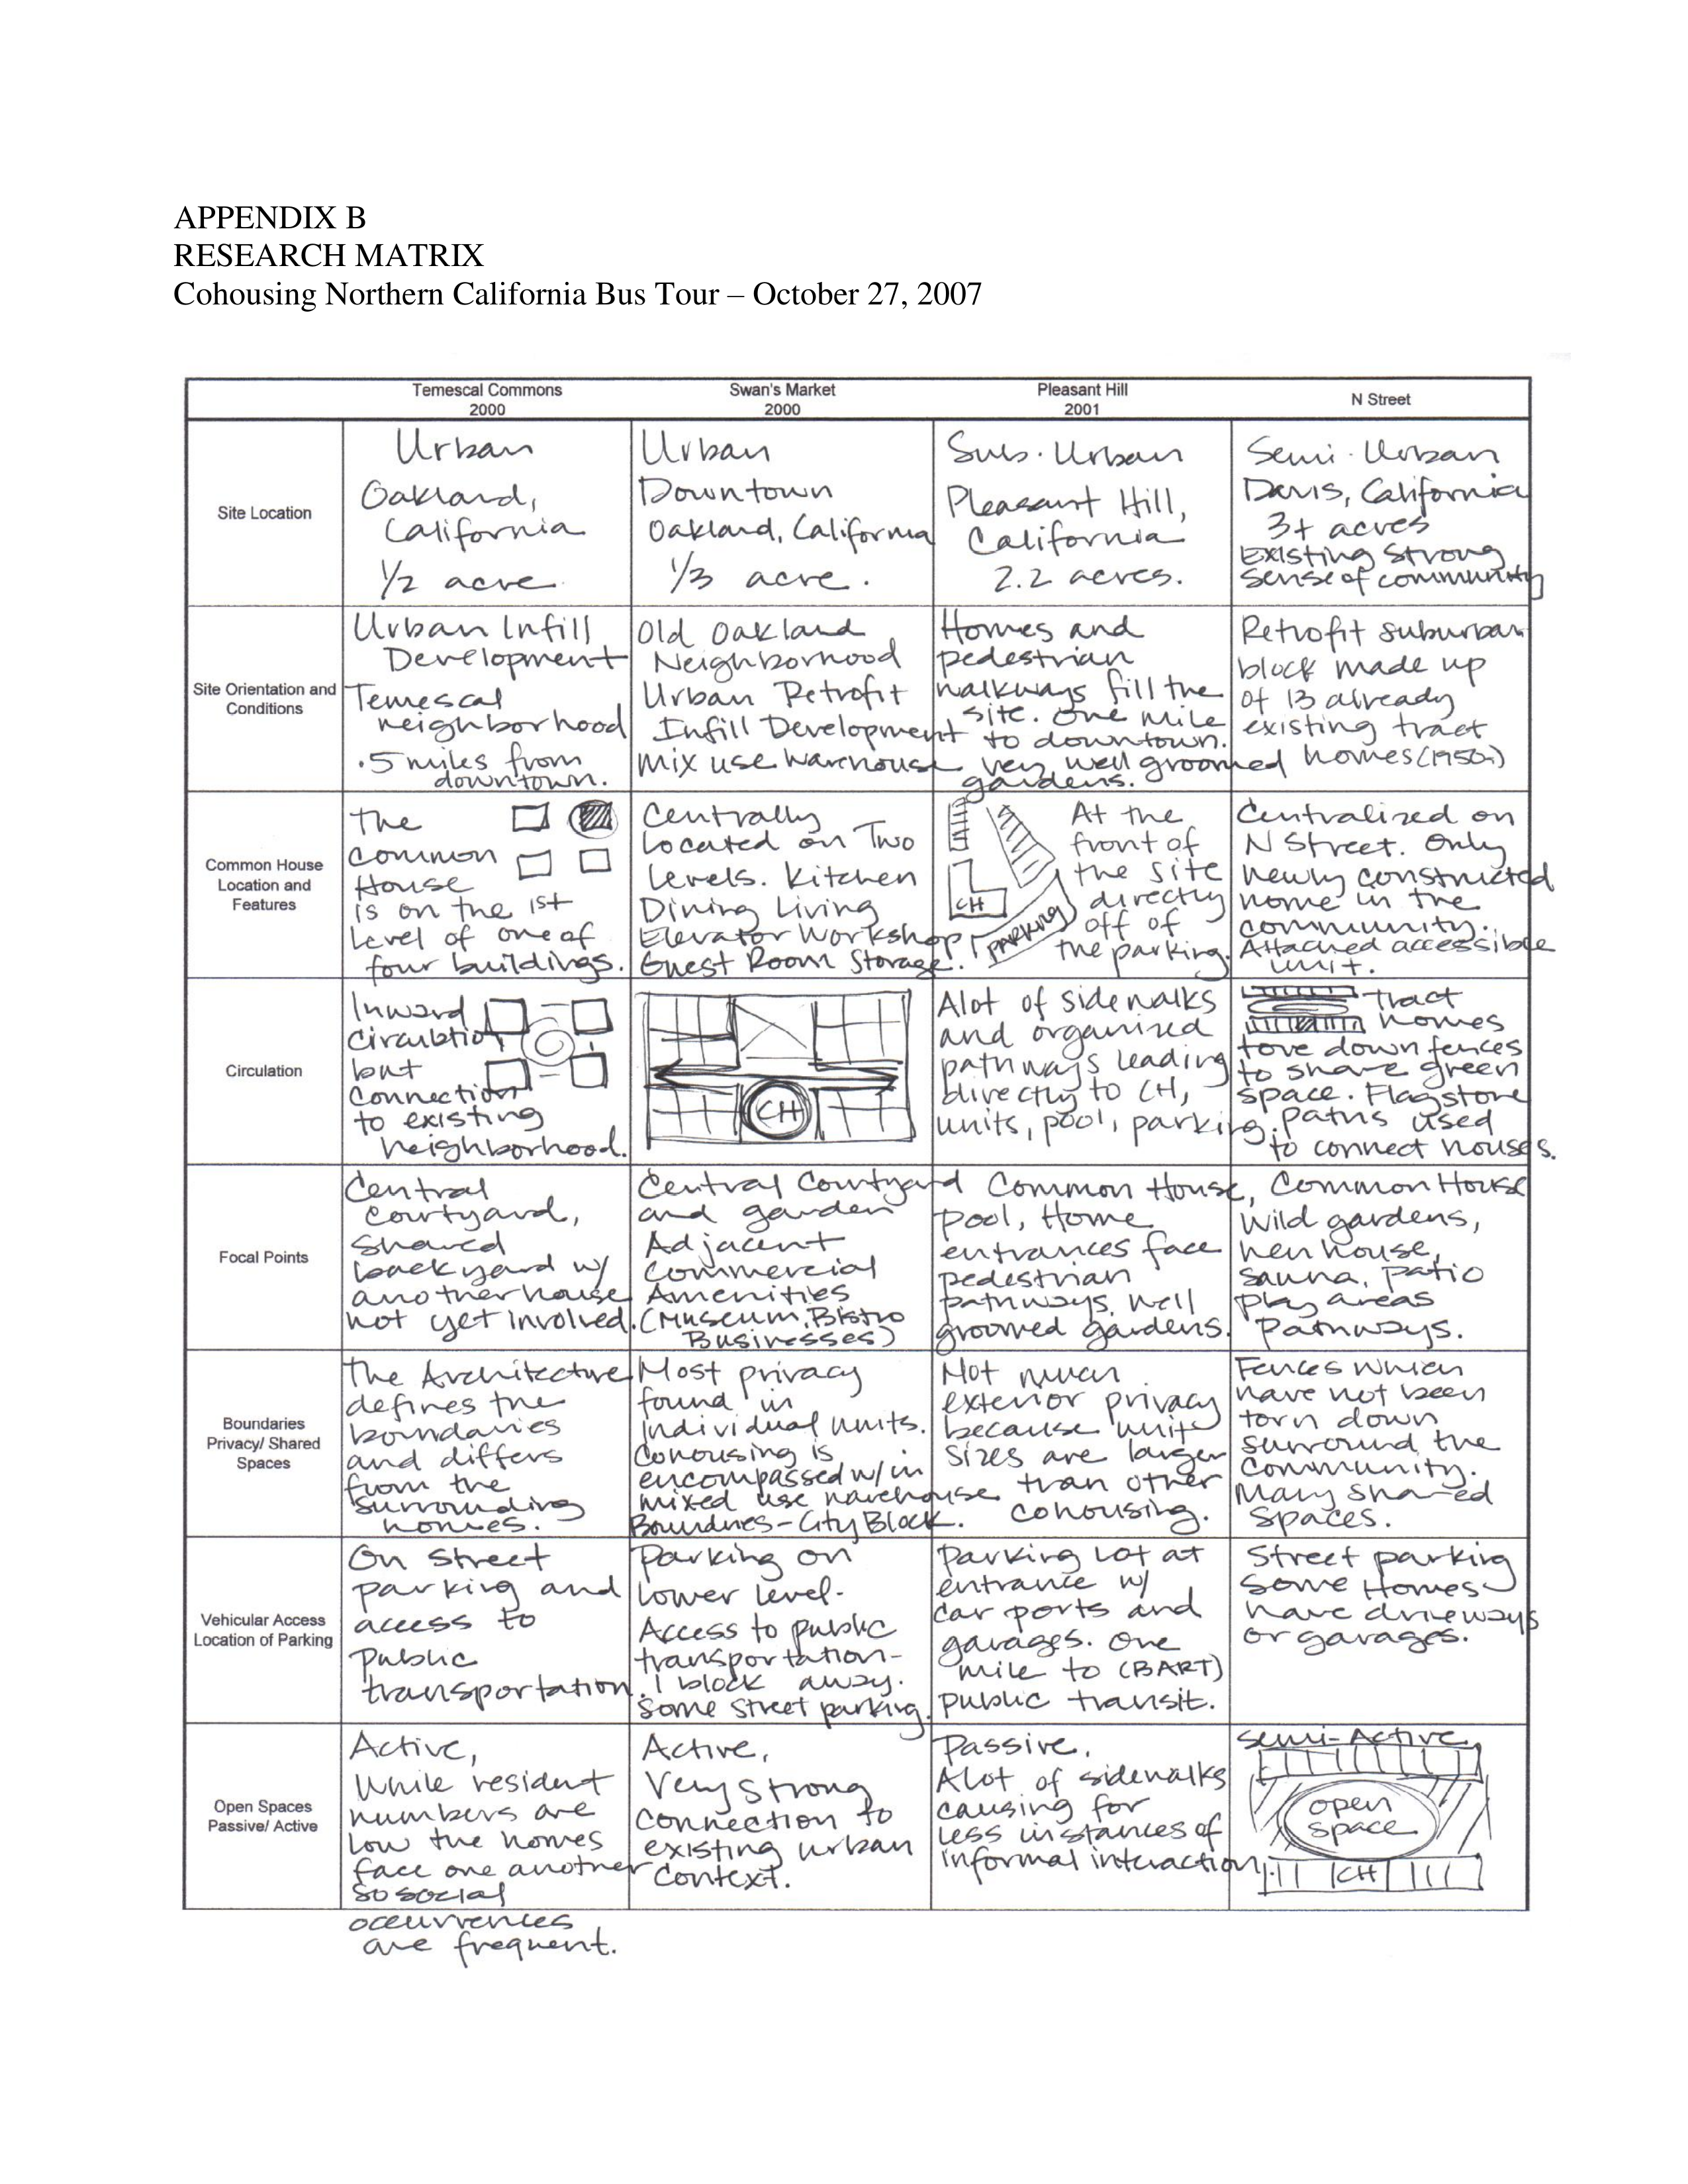 APPENDIX B
RESEARCH MATRIX
Cohousing Northern California Bus Tour – October 27, 2007
Temescal Commons
2000
Swan's Market
2000
Pleasant Hill
2001
N Street
Site Location
Urban
Oakland,
California
1/2 acre.
Urban
Downtown
Oakland, California
1/3 acre.
Sub. Urban
Pleasant Hill,
California
2.2 acres.
Semi-Urban
Davis, California
3+ acres
Existing Strong
sense of community
Site Orientation and
Conditions
Urban Infill
Development
Temescal
neighborhood
.5 miles from
downtown.
Old Oakland
Neighborhood
Urban Retrofit
Infill Development
mix use warehouse
Homes and
pedestrian
walkways fill the
site. One mile
to downtown.
very well groomed
gardens.
Retrofit suburban
block made up
of 13 already
existing tract
homes (1950s)
Common House
Location and
Features
The
common
House
is on the 1st
level of one of
four buildings.
Centrally
Located on Two
Levels. Kitchen
Dining Living
Elevator Workshop
Guest Room Storage.
CH
PARKING
At the
front of
the site
directly
off of
the parking.
Centralized on
N Street. Only
newly constructed
home in the
community.
Attached accessible
unit.
Circulation
Inward
circulation
but
connection
to existing
neighborhood.
CH
Alot of sidewalks
and organized
pathways leading
directly to CH,
units, pool, parking.
tract
homes
tore down fences
to share green
space. Flagstone
paths used
to connect houses.
Focal Points
Central
courtyard,
shared
backyard w/
another house
not yet involved.
Central Courtyard
and garden
Adjacent
commercial
Amenities
(Museum, Bistro
Businesses)
Common House,
pool, Home
entrances face
pedestrian
pathways, well
groomed gardens.
Common House
Wild gardens,
hen house,
sauna, patio
play areas
Pathways.
Boundaries
Privacy/ Shared
Spaces
The Architecture
defines the
boundaries
and differs
from the
surrounding
homes.
Most privacy
found in
individual units.
Cohousing is
encompassed w/in
mixed use warehouse
Boundries - City Block.
Not much
exterior privacy
because unit
sizes are larger
than other
cohousing.
Fences which
have not been
torn down
surround the
community.
Many shared
spaces.
Vehicular Access
Location of Parking
On Street
parking and
access to
Public
transportation.
Parking on
lower level-
Access to public
transportation-
1 block away.
Some street parking.
Parking Lot at
entrance w/
car ports and
garages. One
mile to (BART)
public transit.
Street parking
some Homes
have driveways
or garages.
Open Spaces
Passive/ Active
Active,
While resident
numbers are
low the homes
face one another
so social
occurrences
are frequent.
Active,
Very Strong
connection to
existing urban
context.
Passive,
Alot of sidewalks
causing for
less instances of
informal interaction.
Semi-Active
open
space
CH